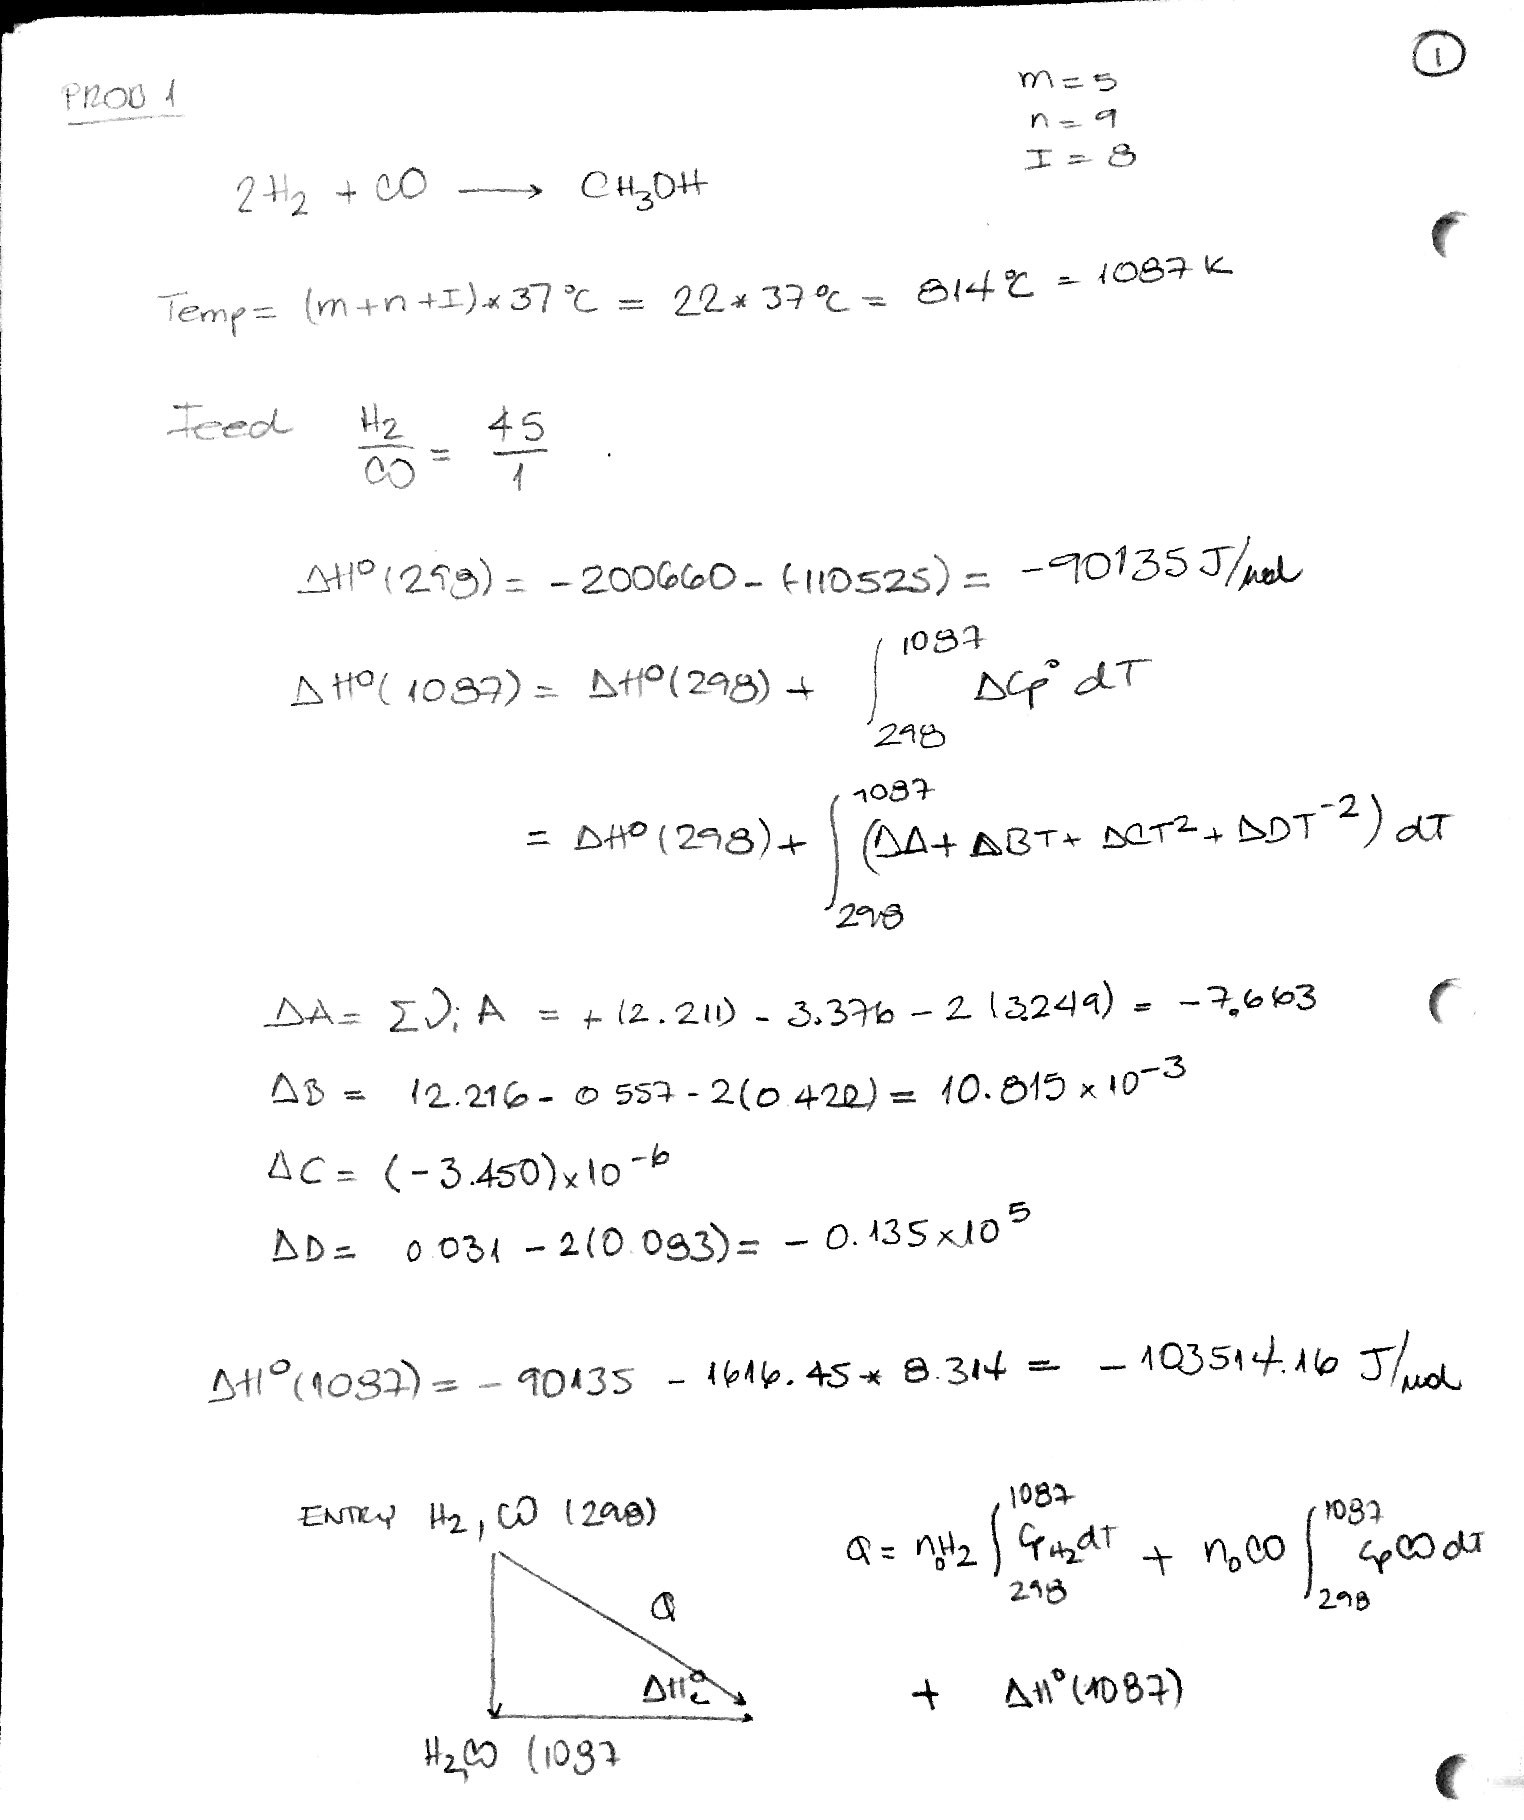 1
PROB 1
m = 5
n = 9
I = 8
2H₂ + CO ⟶ CH₃OH
Temp = (m+n+I)*37°C = 22*37°C = 814°C = 1087 K
Feed H₂/CO = 45/1
ΔH°(298) = -200660 - (-110525) = -90135 J/mol
ΔH°(1087) = ΔH°(298) + ∫₂₉₈¹⁰⁸⁷ ΔCp° dT
= ΔH°(298) + ∫₂₉₈¹⁰⁸⁷ (ΔA + ΔBT + ΔCT² + ΔDT⁻²) dT
ΔA = Σνᵢ A = +(2.211) - 3.376 - 2(3.249) = -7.663
ΔB = 12.216 - 0.557 - 2(0.422) = 10.815 × 10⁻³
ΔC = (-3.450) × 10⁻⁶
ΔD = 0.031 - 2(0.083) = -0.135 × 10⁵
ΔH°(1087) = -90135 - 1616.45 * 8.314 = -103514.16 J/mol
ENTRY H₂, CO (298)
Q = n₀H₂ ∫₂₉₈¹⁰⁸⁷ CpH₂ dT + n₀CO ∫₂₉₈¹⁰⁸⁷ CpCO dT
Q
ΔH°₂
+ ΔH°(1087)
H₂,CO (1087